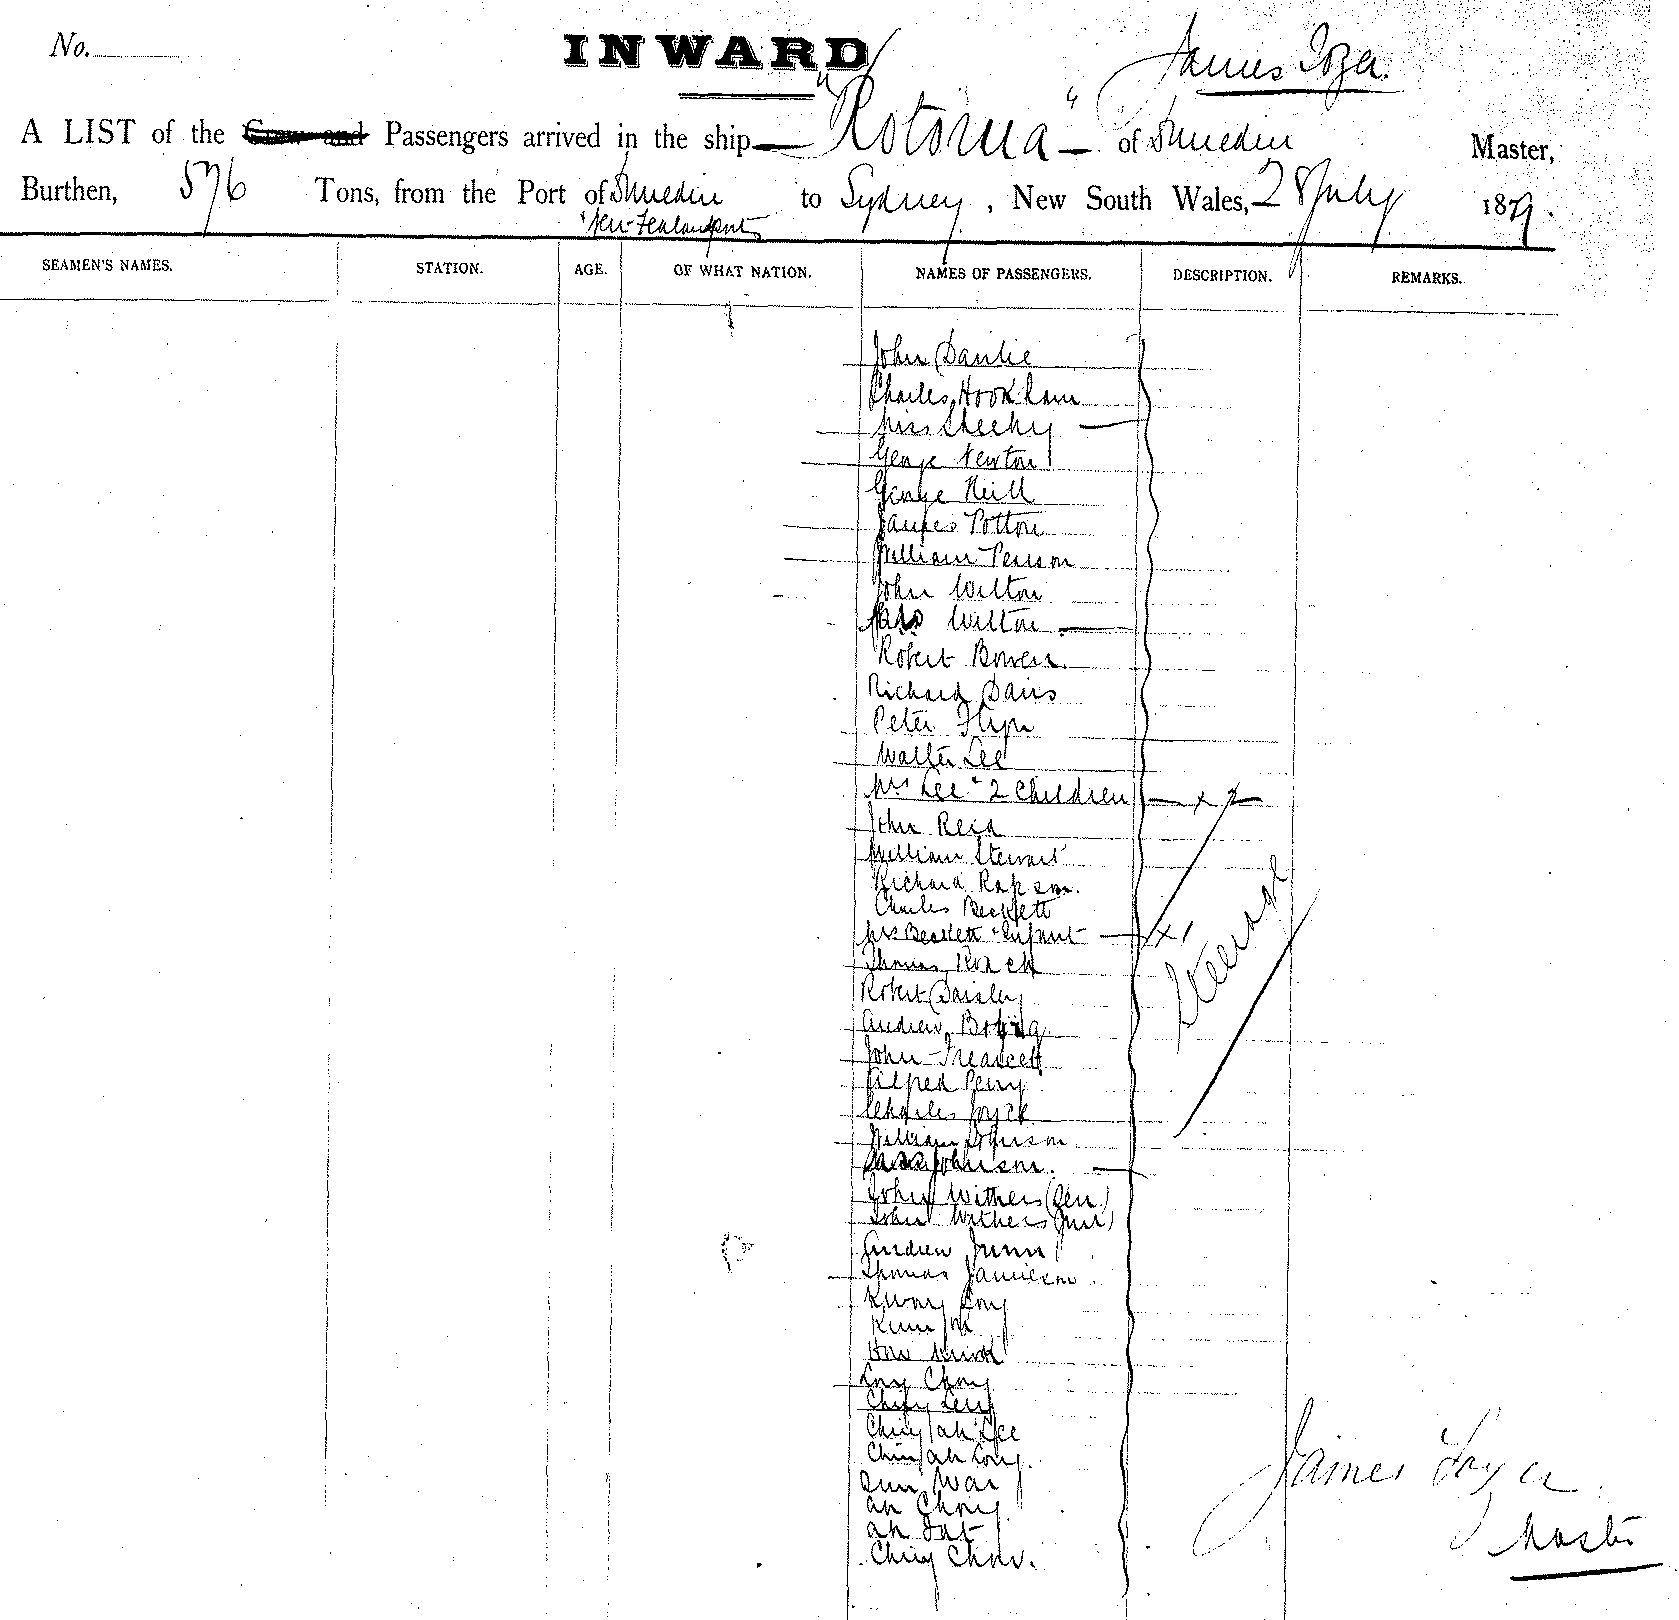 No.
INWARD
James Tozer.
A LIST of the Crew and Passengers arrived in the ship "Rotorua" of Dunedin Master,
Burthen, 576 Tons, from the Port of Dunedin to Sydney, New South Wales, 28 July 1879.
New Zealand
SEAMEN'S NAMES. STATION. AGE. OF WHAT NATION. NAMES OF PASSENGERS. DESCRIPTION. REMARKS.
John
Charles Hookham
Miss Sheehy
George Newton
George Neill
James Potton
William Penson
John Wilton
Mrs Wilton
Robert Bowen
Richard Davis
Peter
Walter Lee
Mrs Lee & 2 Children x 2
John Reid
William Stewart
Richard Rapson.
Charles Beckett
Mrs Beckett & Infant x 1
Steerage
Thomas Roach
Robert
Andrew
John
Alfred Perry
Charles Joyce
William Johnson
Johnson.
John Withers (Sen)
John Withers (Jun)
Andrew
Thomas Jamieson
Kwong
Kum
Lay Chong
Ching
Ching ah Lee
Ching ah
Sun War
ah Chong
ah Fat
Ching Chow.
James Tozer
Master